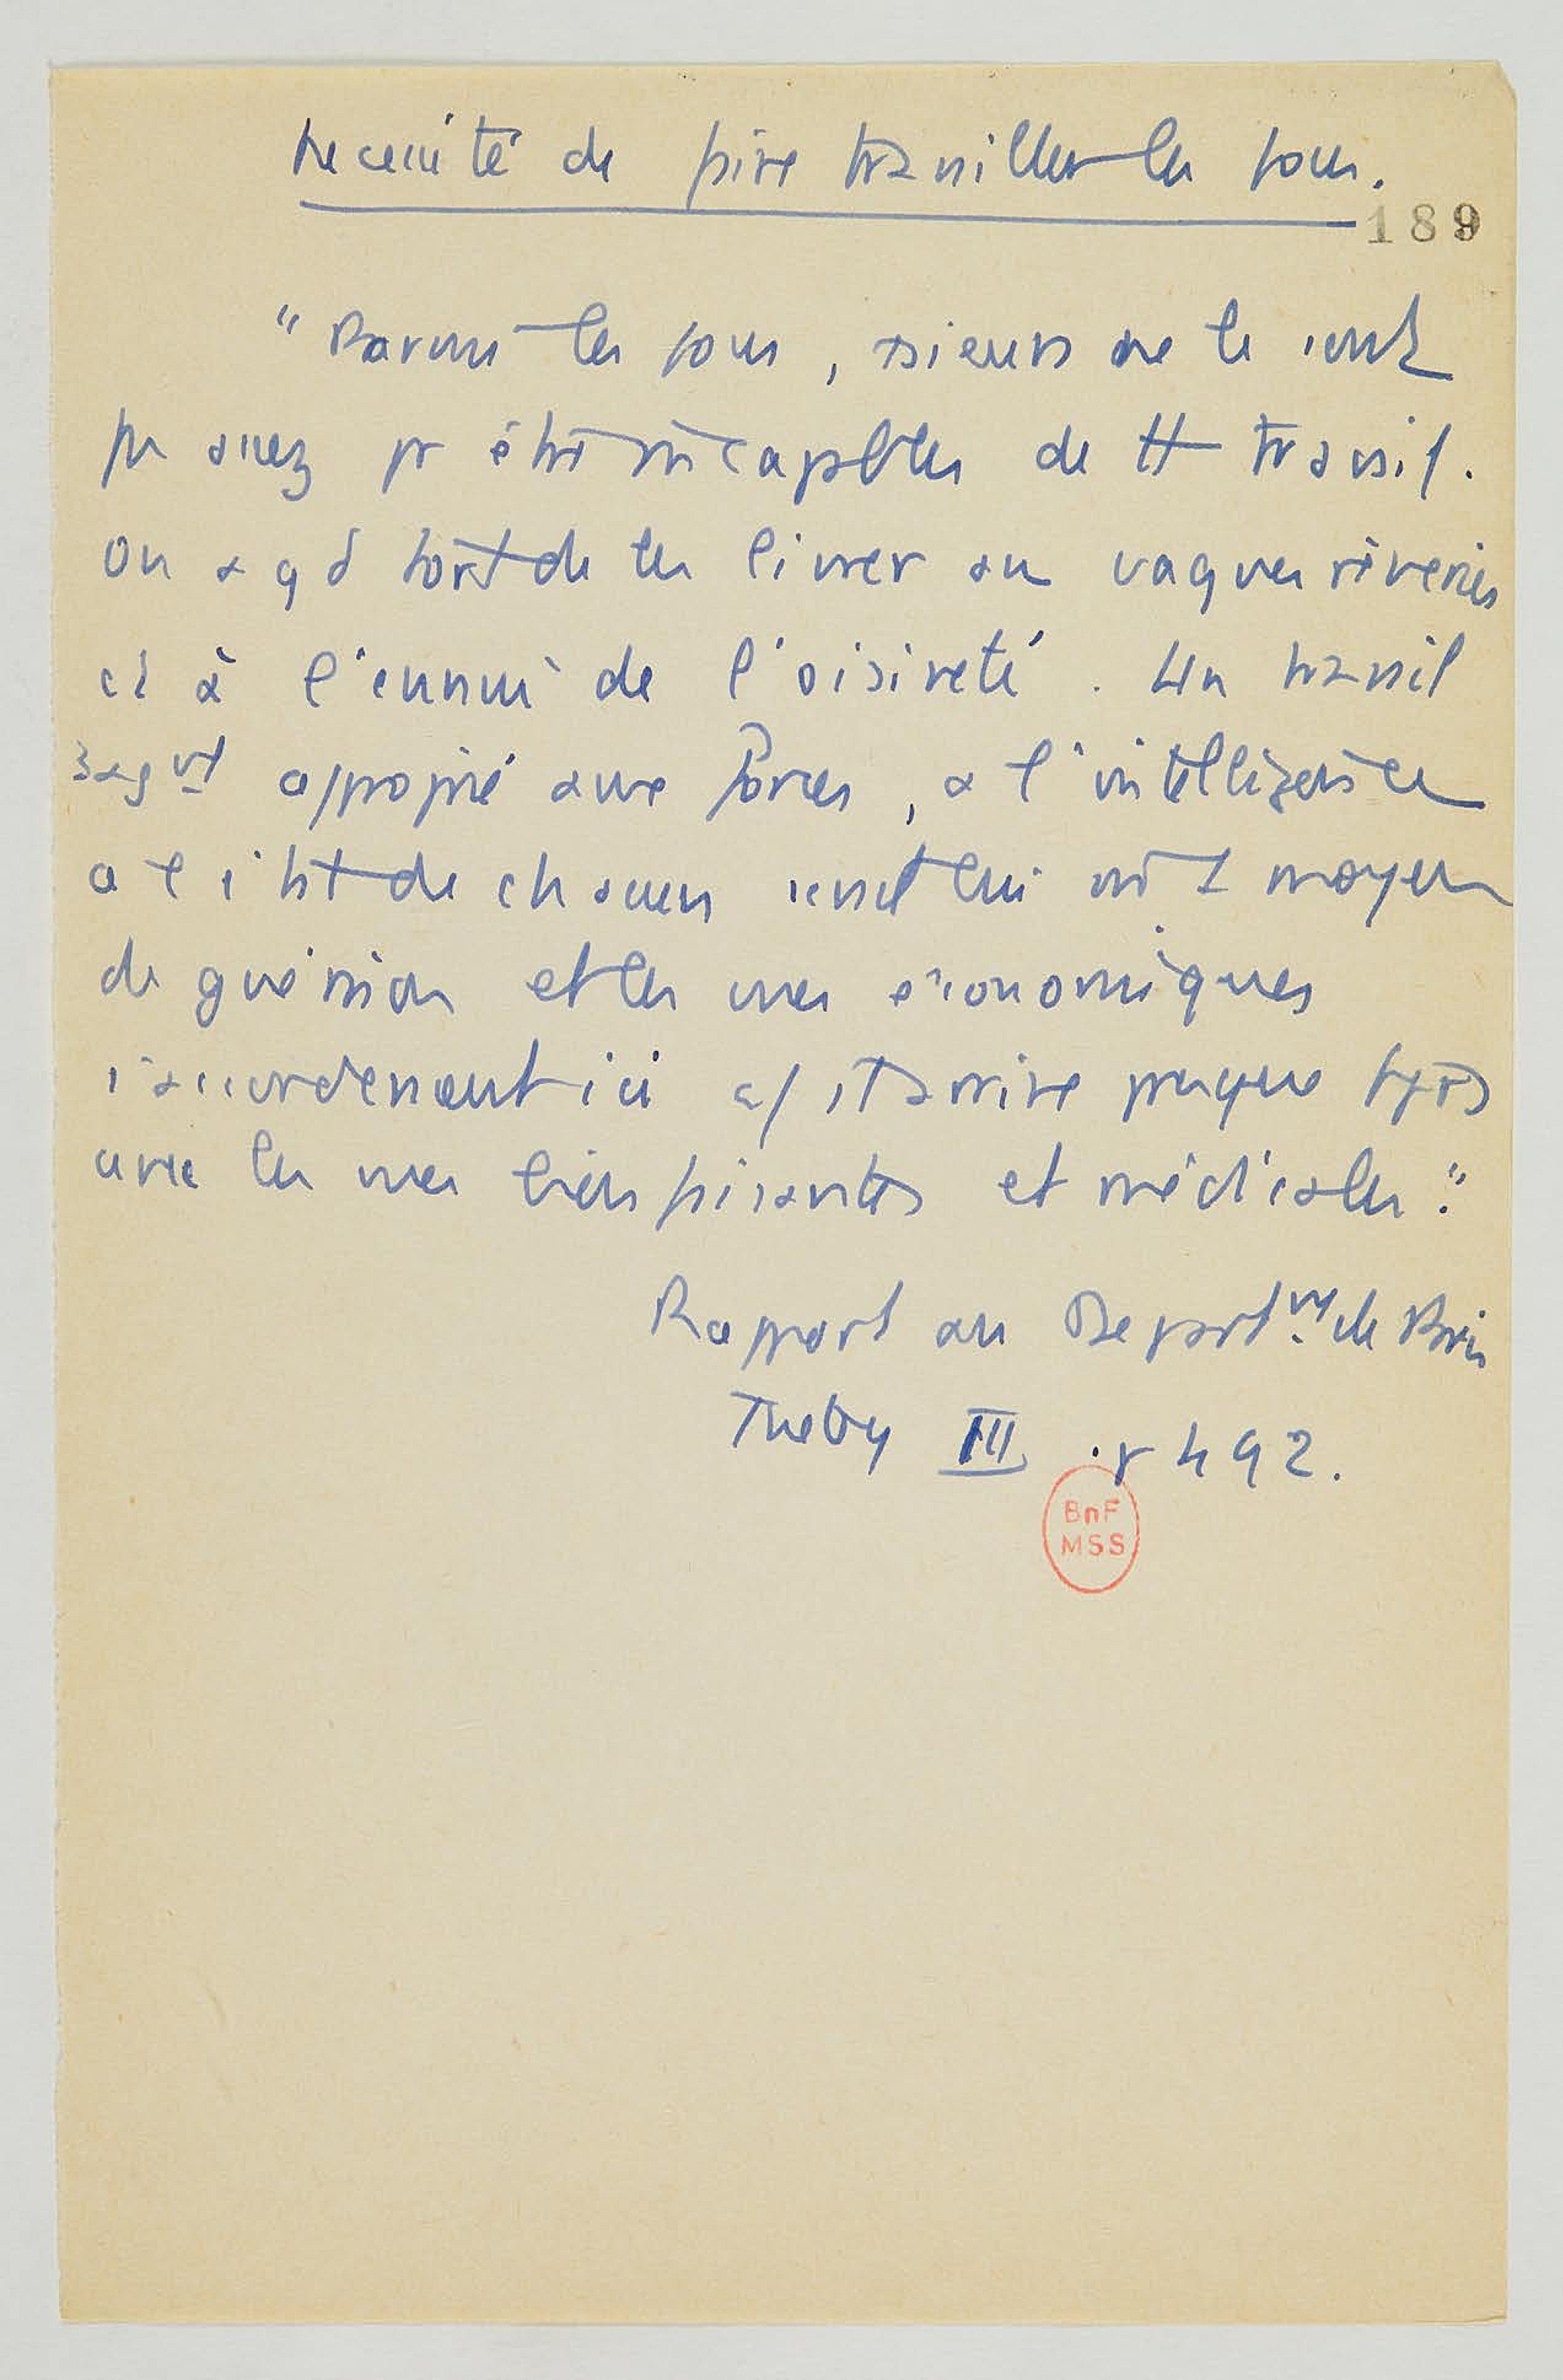 Necessité de faire travailler les fous.
189
"Parmi les fous, plusieurs ne le sont
pas assez pr être incapables de tt travail.
On a gd tort de les livrer au vagues rêveries
et à l'ennui de l'oisiveté. Un travail
sagmt approprié aux forces, a l'intelligence
a l'état de chacun serait lui un moyen
de guérison et les vues économiques
s'accorderaient ici c/ il arrive presque tjrs
avec les vues bienfaisantes et médicales."
Rapport au Departmt de Paris
Tuetey III p 492.
BnF
MSS